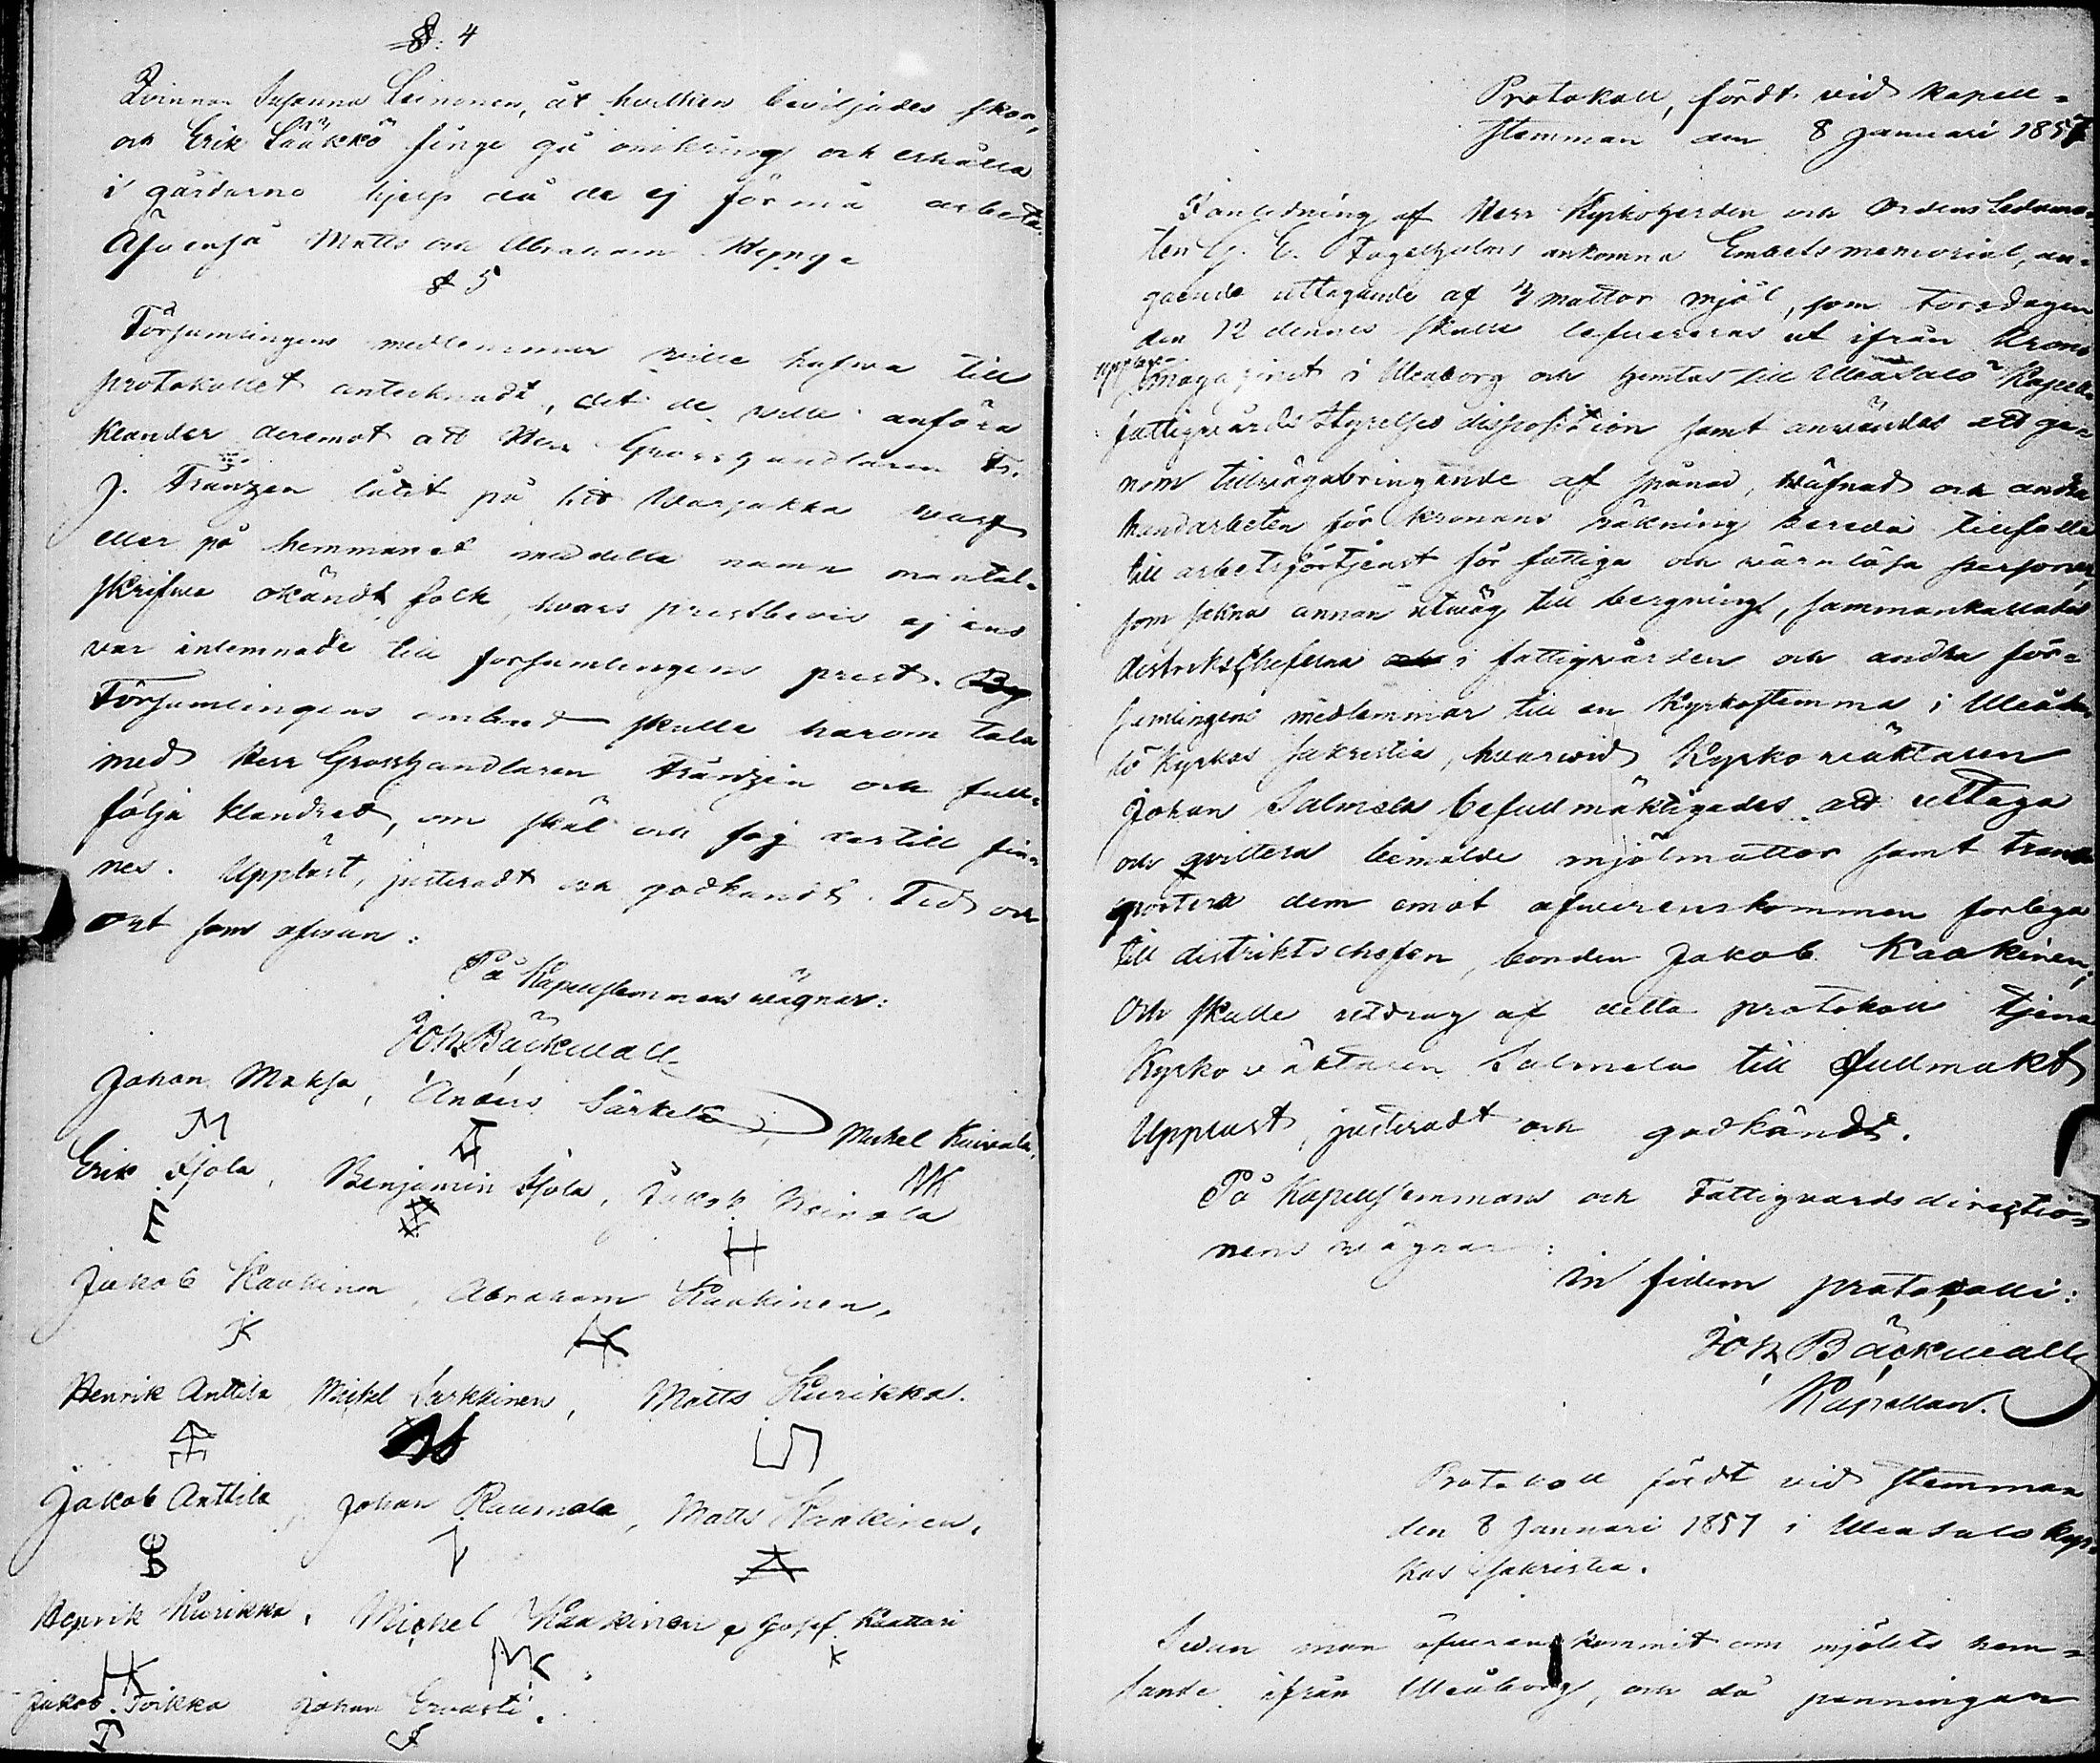 §: 4
Qvinnan Susanna Leinonen, åt hvilken beviljades skor,
och Erik Säükkö finge gå omkring och erhålla
i gårdarne hjelp då de ej förmå arbeta.
Äfvenså Matts och Abraham
§ 5
Församlingens medlemmar wille hafwa till
protokollet antecknadt, det de wille anföra
klander deremot att Herr Grosshandlaren Fr.
J. Franzen låtit på sitt Warjakka warf
eller på hemmanet med detta namn mantal-
skrifwa okändt folk, hvars prestbevis ej ens
var inlemnade till församlingens prest.
Församlingens ombud skulle härom tala
med Herr Grosshandlaren Franzén och full-
följa klandret, om skäl och fog dertill fin-
nes. Uppläst, justeradt och godkändt. Tid och
ort som ofwan:
På Kapellstemmans wägnar:
Joh. Bäckwall
Johan Maksa, Anders Särkelä, Mickel Kuivala,
M
Erik Isola, Benjamin Isola, Jakob Heinola
E H MK
Jakob Kaakinen, Abraham Kaakinen,
K
Henrik Anttila, Mickel Sarkkinen, Matts Kurikka.
Jakob Anttila, Johan Raumala, Matts Kaakinen,
Henrik Kurikka, Michel Kaakinen, Josef Kaattari
HK MK K
Jakob Toikka Johan Ervasti.
Protokoll, fördt vid kapell-
stemman den 8 Januari 1857
I anledning af Herr Kyrkoherden och Ordens Ledamo-
ten G. E. ankomna Embetsmemorial, an-
gående uttagande af 4 mattor mjöl, som torsdagen
den 12 dennes skulle lefwereras ut ifrån Krono
magazinet i Uleåborg och hemtas till Uleåsalo Kapells
fattigvårds Styrelses disposition samt användas att ge-
nom tillvägabringande af spånad, wäfnad och andra
handarbeten för kronans räkning bereda tillfälle
till arbetsförtjenst för fattiga och värnlösa personer,
som sakna annan utwäg till bergning, sammankallades
distriktscheferna i fattigvården och andra för-
samlingens medlemmar till en Kyrkostemma i Uleåsa-
lo Kyrkas sakristia, hvarvid Kyrkowäktaren
Johan Salmela befullmäktigades att uttaga
och qvittera bemälde mjölmattor samt trans-
portera dem emot öfwerenskommen forlega
till distriktschefen, bonden Jakob Kaakinen,
Och skulle utdrag af detta protokoll tjena
Kyrkowäktaren Salmela till fullmakt
Uppläst, justeradt och godkändt.
På Kapellstemmans och Fattigvardsdirectio-
nens wägnar:
in fidem protokolli:
Joh. Bäckwall
Kapellan.
Protokoll fördt vid stemman
den 8 Januari 1857 i Uleasalo kyr-
kas sakristia.
Sedan man öfwerenskommit om mjölets hem-
tande ifrån Uleåborg, och då penningar